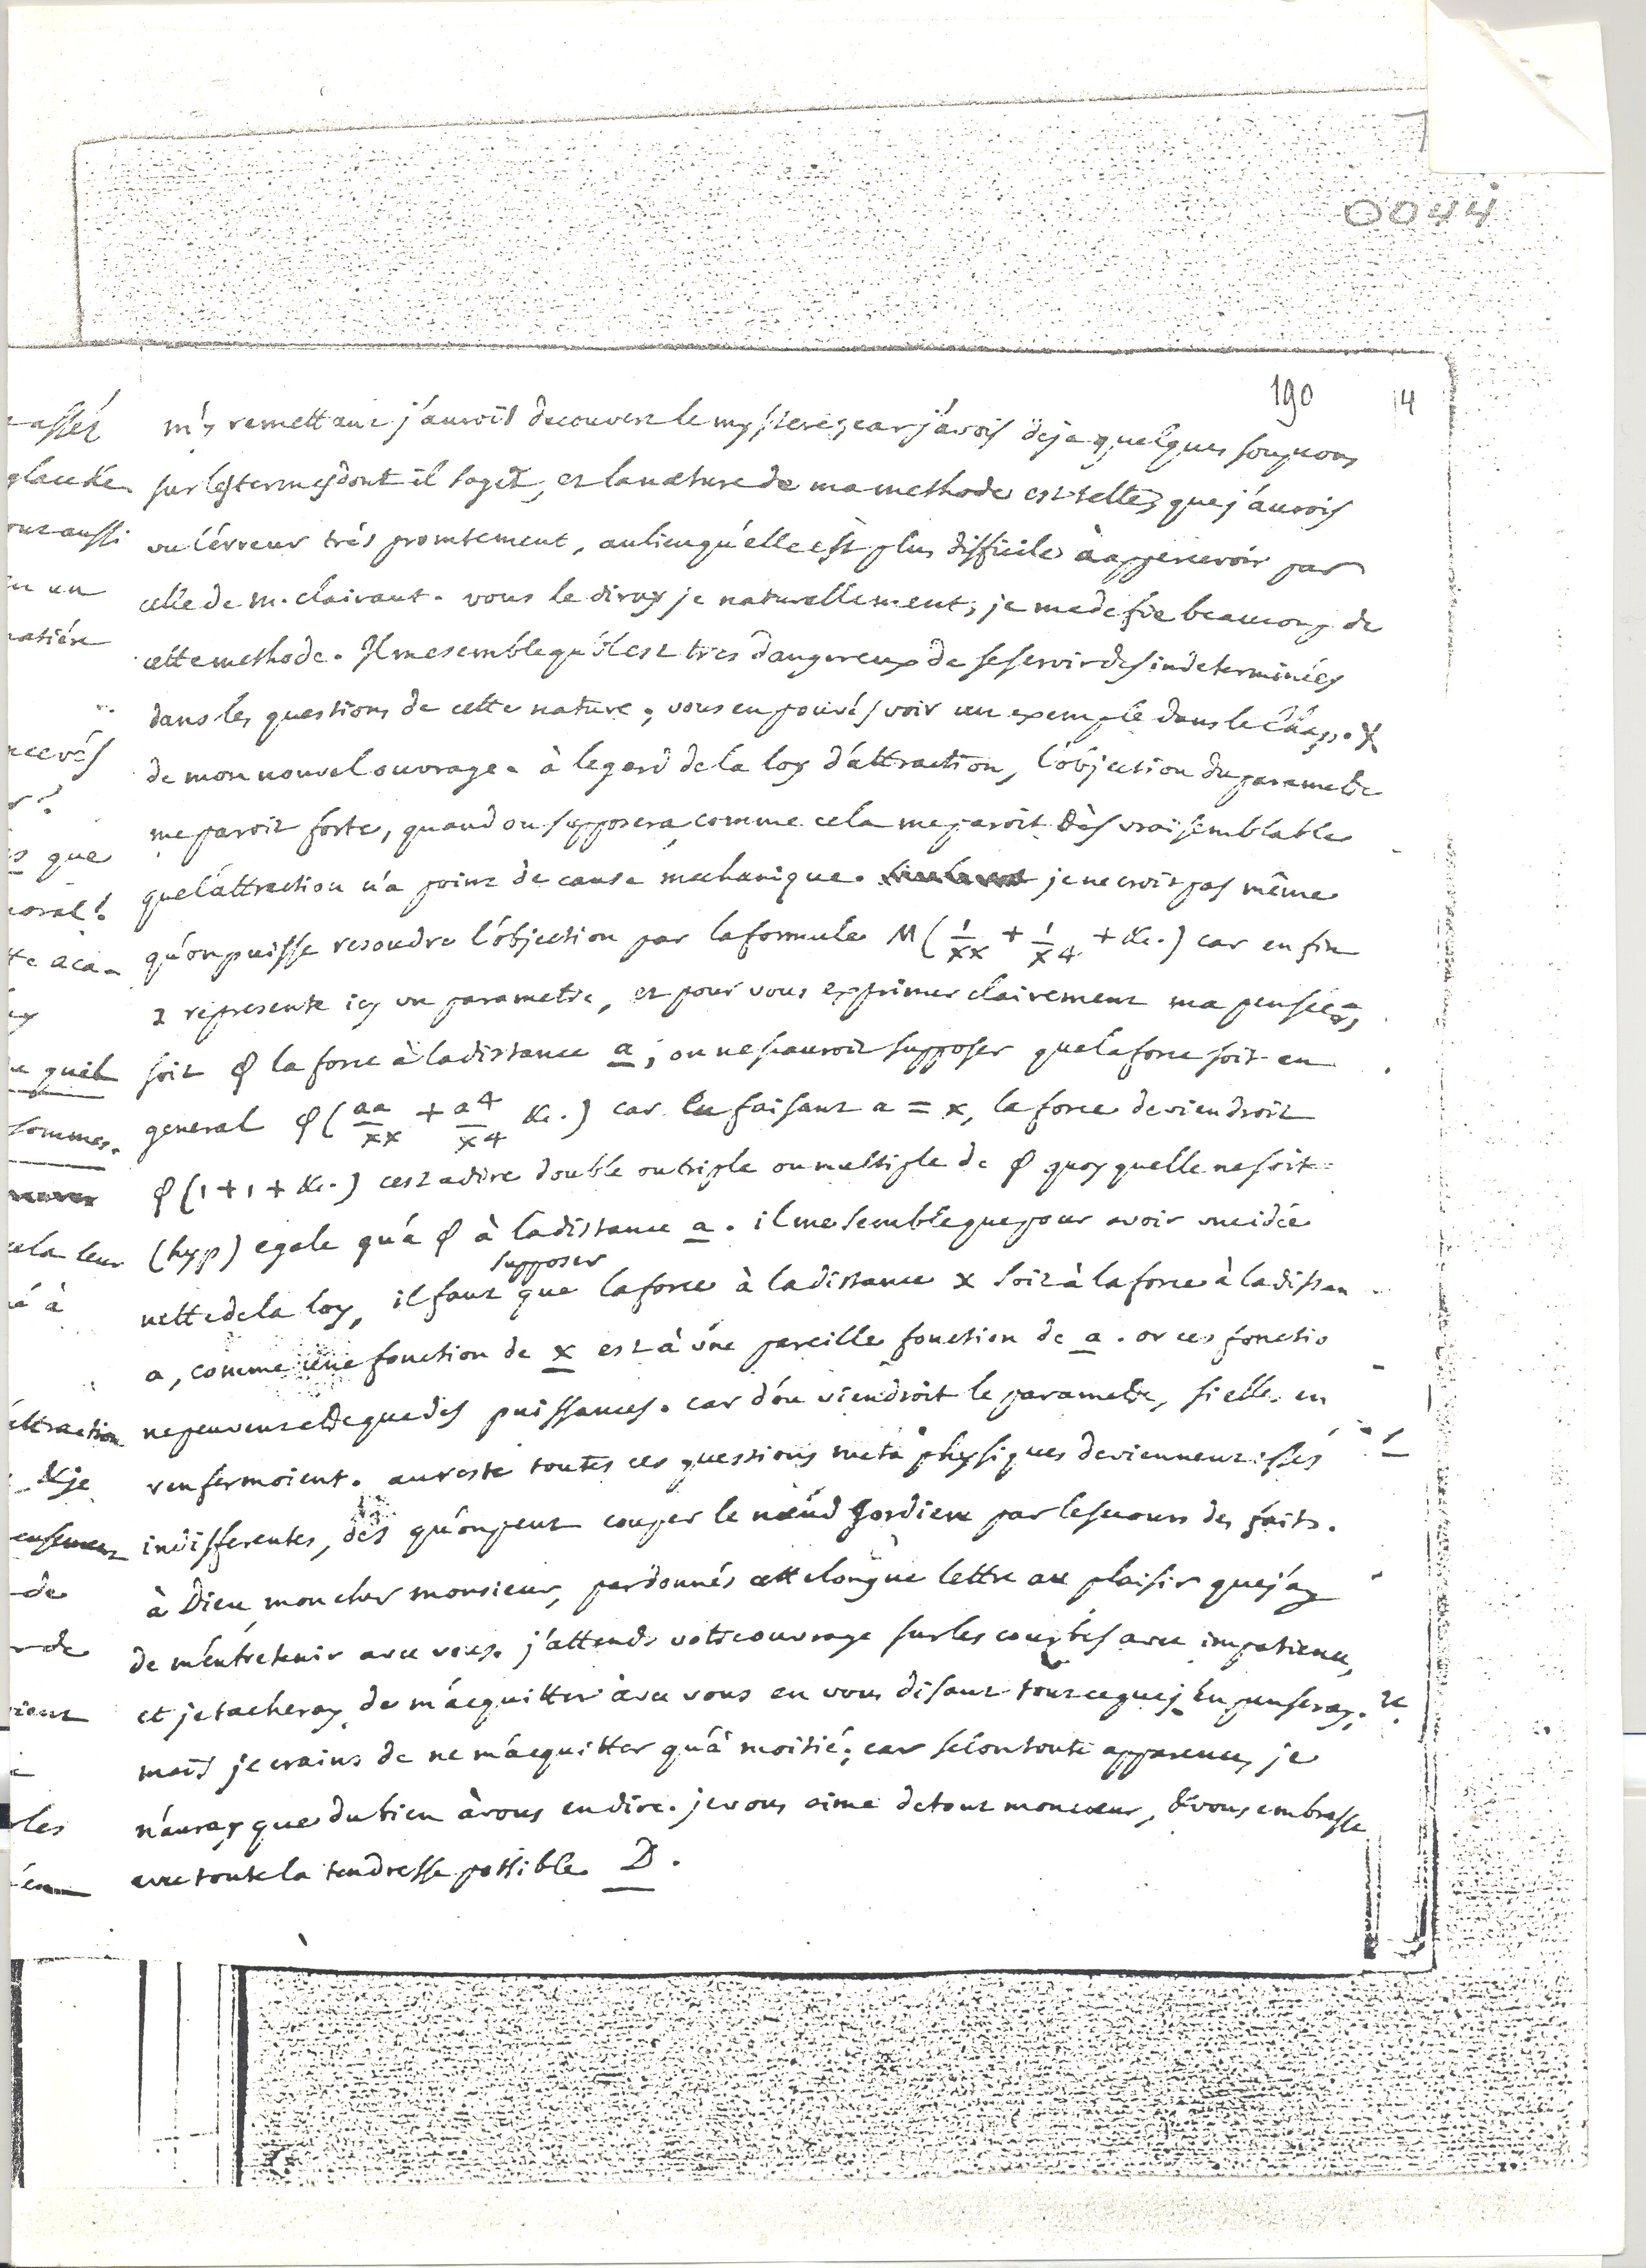 0044
190 14
m'y remettant j'aurois decouvert le mystere; car j'avois deja quelques soupcons
sur les termes dont il sagit, et la nature de ma methode est telle, que j'aurois
vu l'erreur trés promtement, aulieu qu'elle est plus difficile à appercevoir par
celle de m. clairaut. vous le diray je naturellement, je me defie beaucoup de
cette methode. Il me semble qu'il est tres dangereux de se servir des indeterminées
dans les questions de cette nature; vous en pouvés voir un exemple dans le chap. X
de mon nouvel ouvrage. à legard de la loy d'attraction, l'objection du parametre
me paroit forte, quand on supposera, comme cela me paroit très vraisemblable
que l'attraction n'a point de cause mechanique. je ne crois pas même
qu'on puisse resoudre l'objection par la formule M (1/xx + 1/x4 + &c.) car enfin
1 represente icy un parametre, et pour vous exprimer clairement ma pensée,
soit φ la force à la distance a; on ne scauroit supposer que la force soit en
general φ (aa/xx + a4/x4 &c.) car en faisant a = x, la force deviendroit
φ (1 + 1 + &c.) cest adire double ou triple ou multiple de φ quoy quelle ne soit
(hyp) egale qu'à φ à la distance a. il me semble que pour avoir une idée
supposer
nette de la loy, il faut que la force à la distance x soit à la force à la distan
a, comme une fonction de x est à une pareille fonction de a. or ces fonctio
ne peuvent etre que des puissances. car d'ou viendroit le parametre, si elle en
renfermoient. au reste toutes ces questions metaphysiques deviennent assés
indifferentes, dès qu'on peut couper le nœud gordien par le secours des faits.
à Dieu mon cher monsieur, pardonnés cette longue lettre au plaisir que j'ay
de m'entretenir avec vous. j'attends votre ouvrage sur les courbes avec impatience,
et je tacheray de m'acquitter avec vous en vous disant tout ce que j'en penseray.
mais je crains de ne m'acquitter qu'à moitié; car selon toute apparence, je
n'auray que du bien à vous en dire. je vous aime de tout mon cœur, & vous embrasse
avec toute la tendresse possible D.